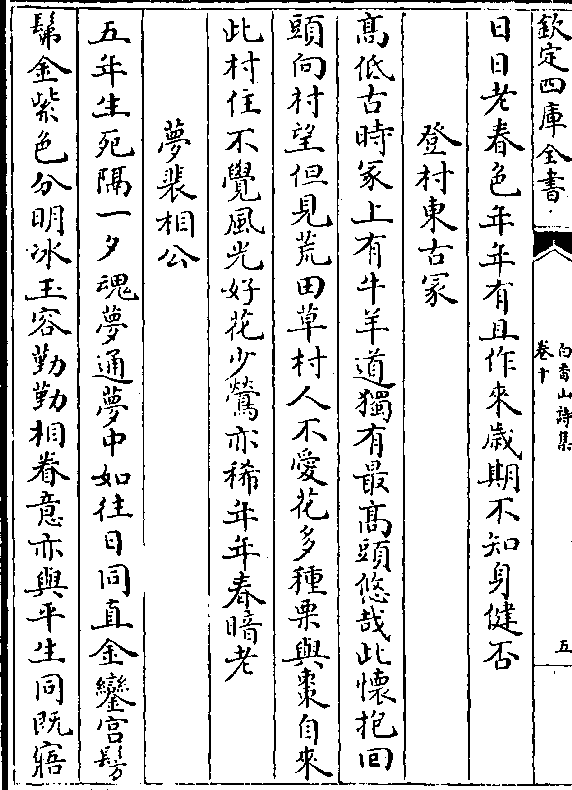 欽定四庫全書
白香山詩集
卷十
五
日日老春色年年有且作來歲期不知身健否
登村東古冢
髙低古時冢上有牛羊道獨有最髙頭悠哉此懷抱回
頭向村望但見荒田草村人不愛花多種栗與棗自來
此村住不覺風光好花少鶯亦稀年年春暗老
夢裴相公
五年生死隔一夕魂夢通夢中如往日同直金鑾宫髣
髴金紫色分明冰玉容勤勤相眷意亦與平生同既寤